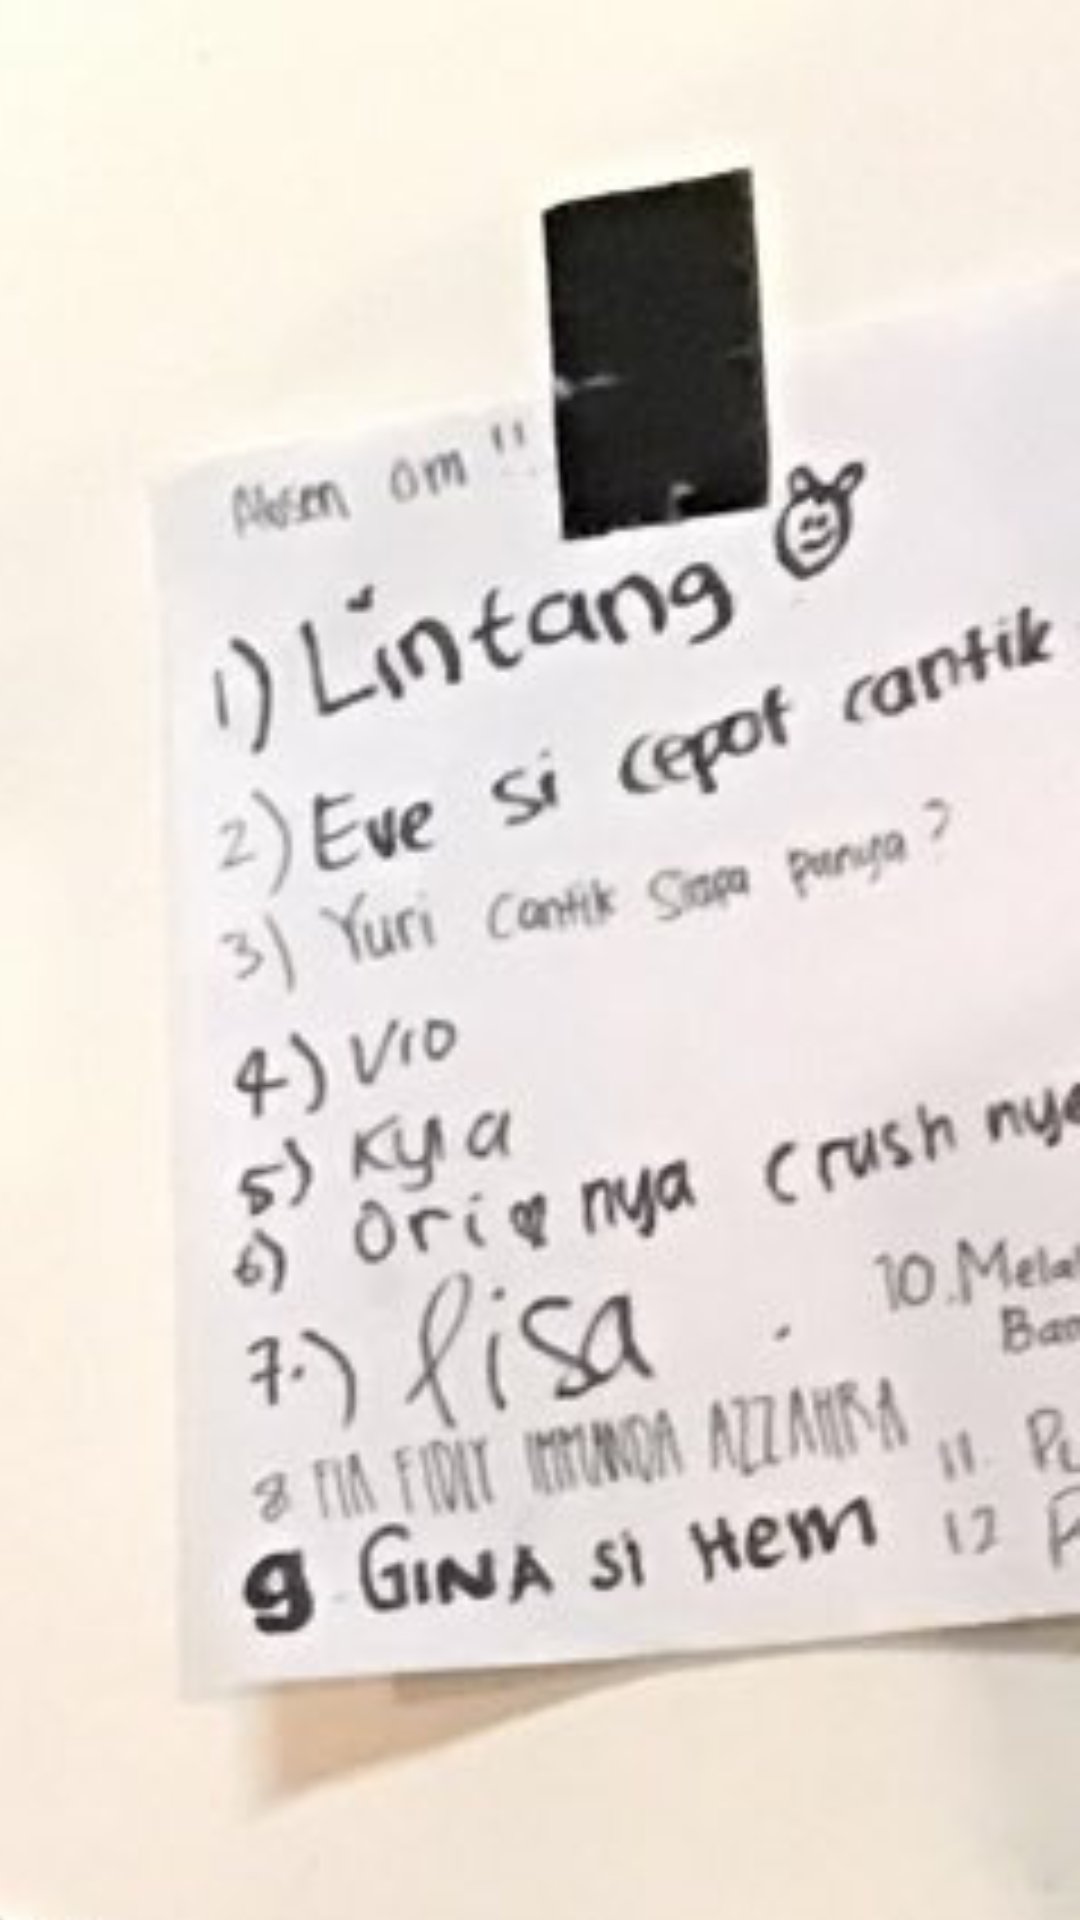 Absen om !!
1) Lintang
2) Eve si cepot cantik
3) Yuri cantik siapa punya ?
4) Vio
5) Kyla
6) Ori nya crush nya
7.) lisa
8 FIA FIDLY IMMANDA AZZAHRA
9 GINA SI HEM
10. Melat
Ban
11. Pu
12 P